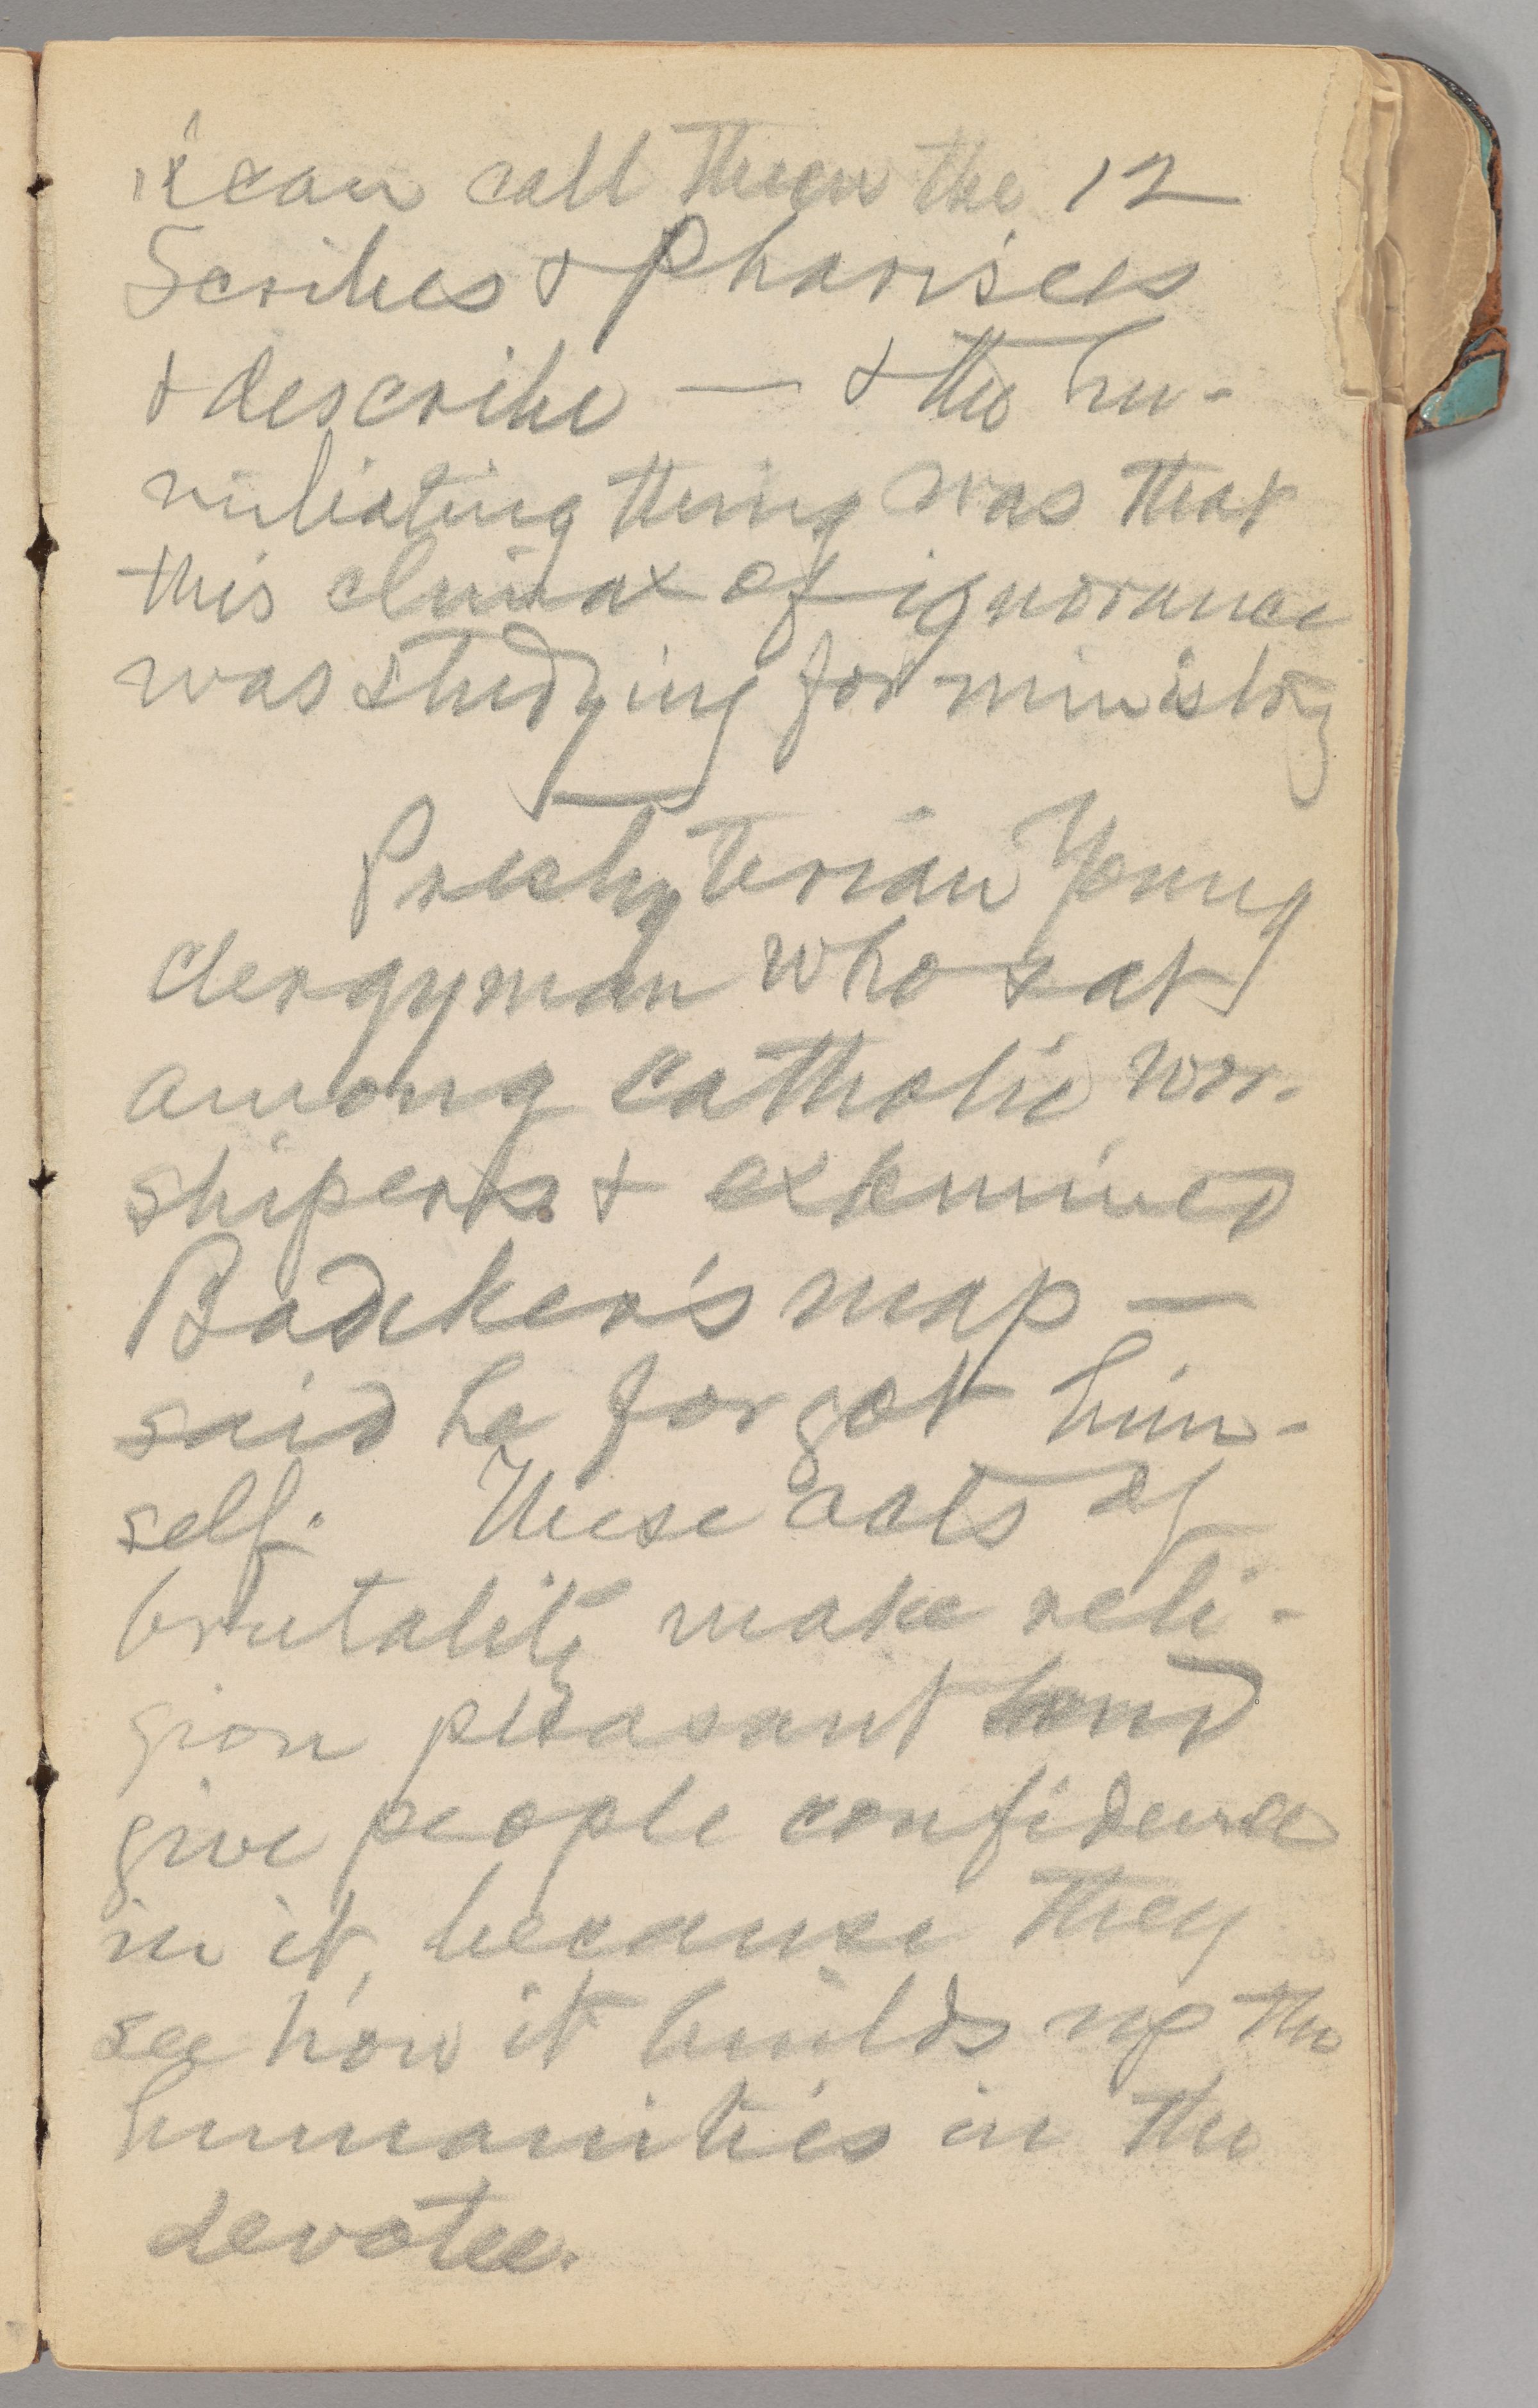 can call them the 12
Scribes & Pharisees
& describe — & the hu-
miliating thing was that
this climax of ignorance
was studying for ministry
Presbyterian Young
clergyman who sat
among catholic wor-
shipers & examined
Badeker's map —
said he forgot him-
self. These acts of
brutality make reli-
gion pleasant and
give people confidence
in it, because they
see how it builds up the
humanities in the
devotee.